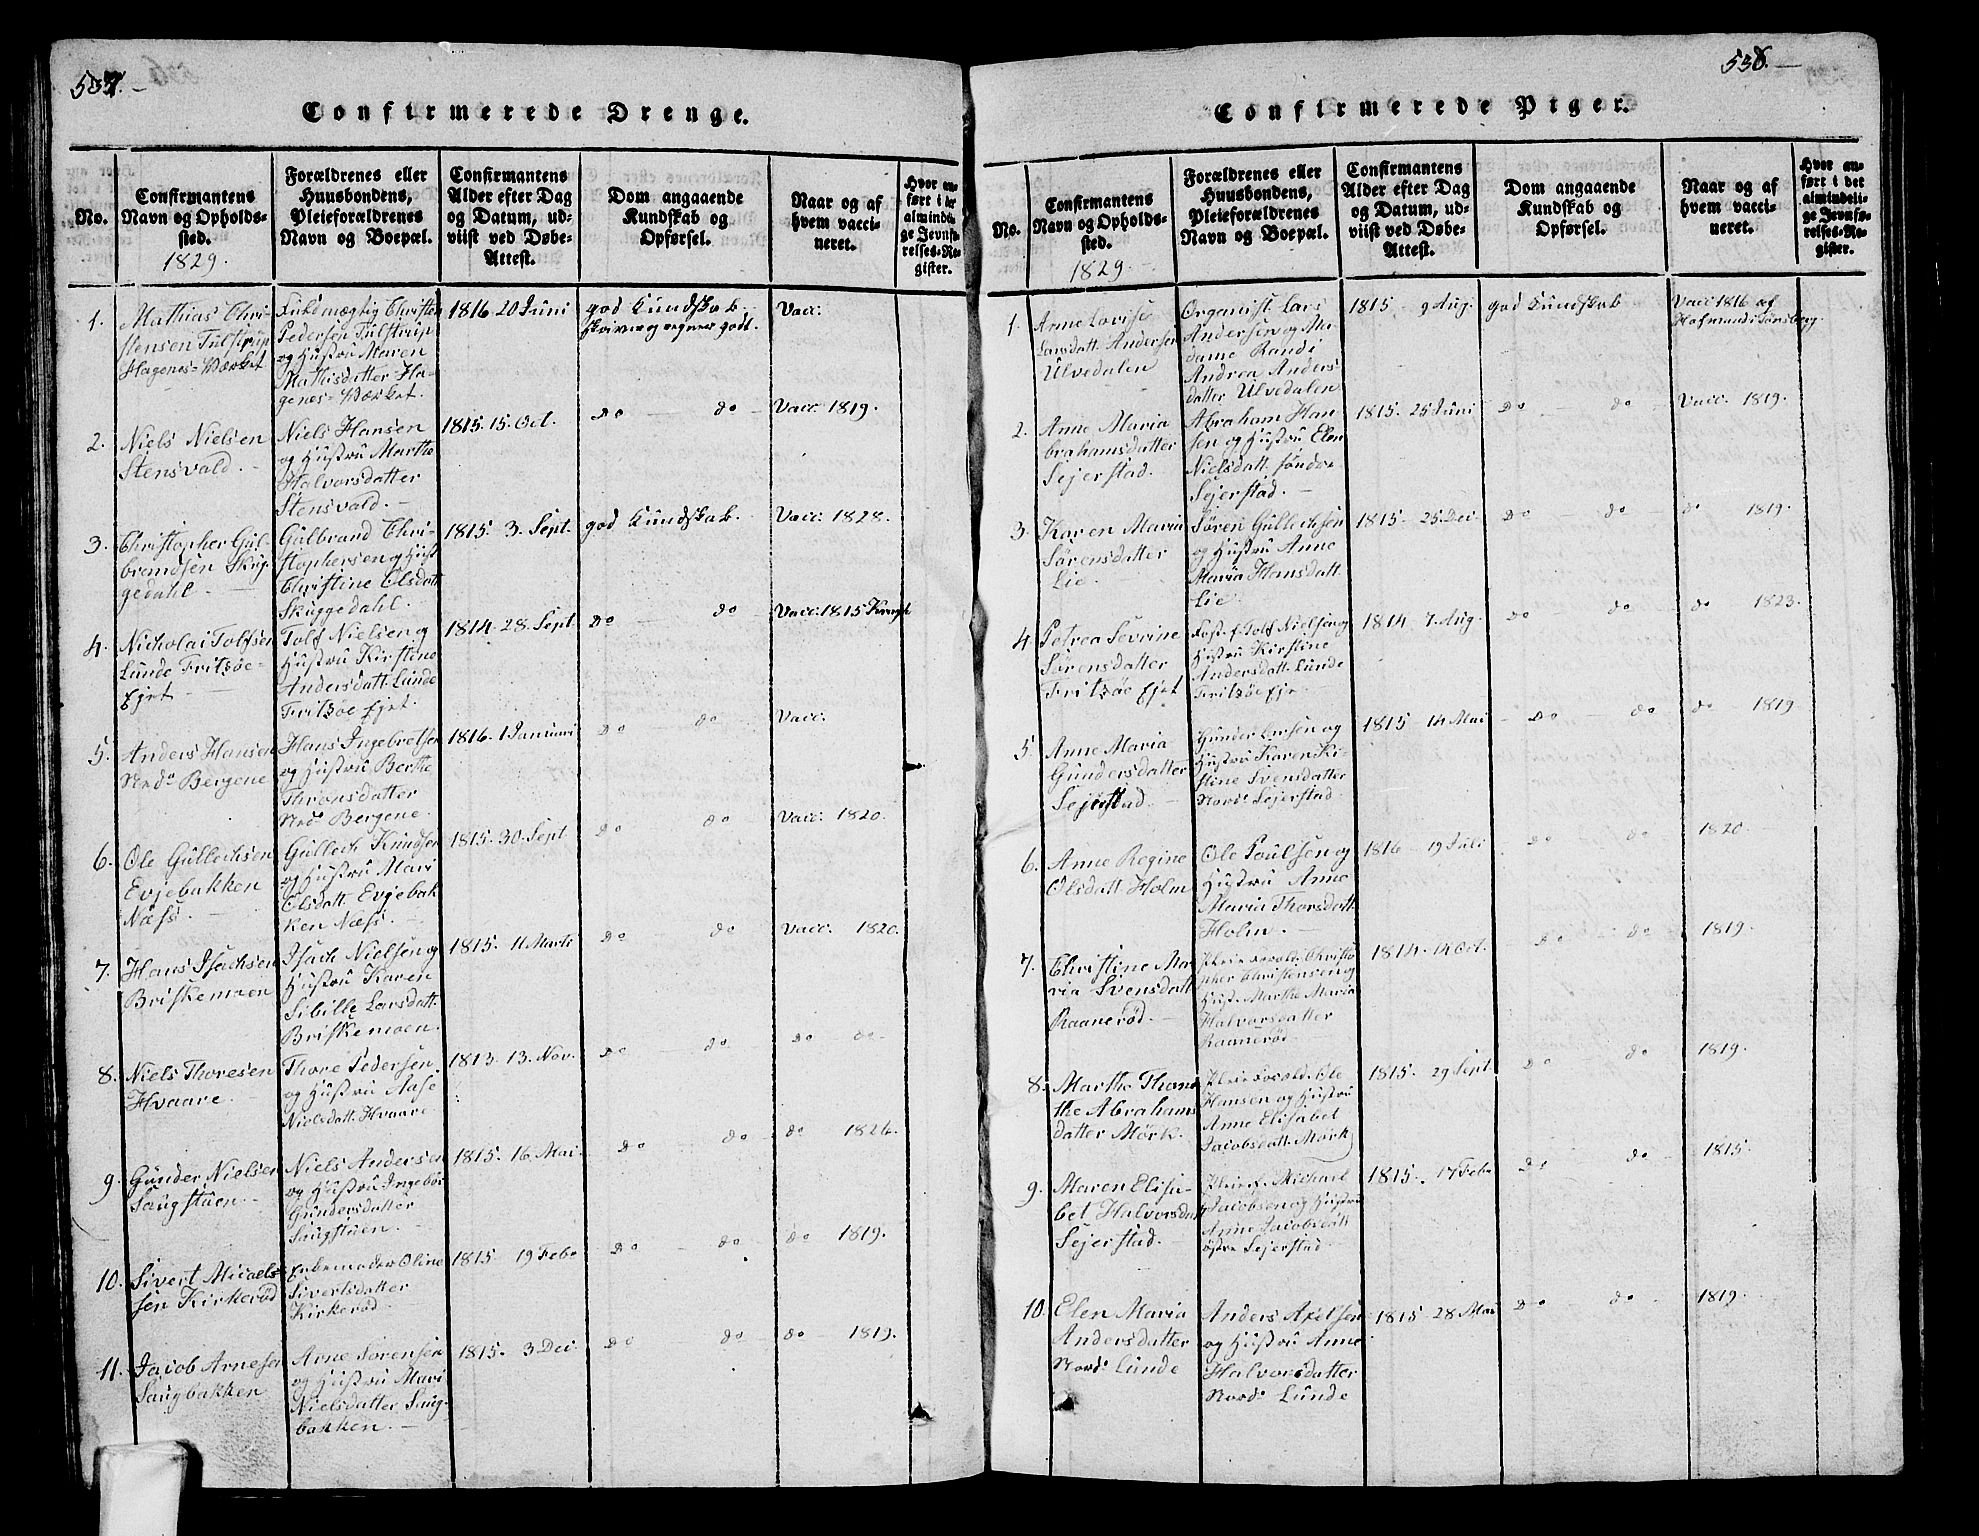 537.
Confirmerede Drenge.
No.
Confirmantens
Navn og Opholds-
sted.
1829.
Forældrenes eller
Huusbondens,
Pleieforældrenes
Navn og Boepæl.
Confirmantens
Alder efter Dag
og Datum, ud-
viist ved Døbe-
Attest.
Dom angaaende
Kundskab og
Opførsel.
Naar og af
hvem vacci-
neret.
Hvor an-
ført i det
almindeli-
ge Jevnfø-
relses-Re-
gister.
1.
Mathias Chri-
stensen Tulstrup
Hagenes-Værket
Fuldmægtig Christen
Pedersen Tulstrup
og Hustru Maren
Mathisdatter Ha-
genes-Værket.
1816 20 Juni
god Kundskab
skriver og regner godt.
Vacc:
2.
Niels Nielsen
Stensvald.
Niels Hansen
og Hustru Marthe
Halvorsdatter
Stensvald.
1815. 15. Oct.
do do
Vacc: 1819.
3.
Christopher Gul-
brandsen Skug-
gedahl.
Gulbrand Chri-
stophersen og Hust
Christine Olsdatt
Skuggedahl.
1815. 3. Sept.
god Kundskab.
Vacc: 1828.
4.
Nicholai Tolfsen
Lunde Fritsøe-
Ejet
Tolf Nielsen og
Hustru Kirstine
Andersdatt. Lunde
Fritsøe Ejet.
1814 28. Sept
do do
Vacc: 1815
5.
Anders Hansen
Nord: Bergene
Hans Ingebretsen
og Hustru Berthe
Thronsdatter
Nord: Bergene.
1816. 1 Januari
do do
Vacc:
6.
Ole Gullechsen
Evjebakken
Næss.
Gullech Knudsen
og Hustru Mari
Olsdatt. Evjebak
ken Næss.
1815. 30. Sept
do do
Vacc: 1820.
7.
Hans Isachsen
Briskemoen
Isach Nielsen og
Hustru Karen
Sibille Larsdatt.
Briskemoen.
1815. 11 Marts
do do
Vacc: 1820.
8.
Niels Thoresen
Hvaare.
Thore Pedersen
og Hustru Aase
Nielsdatt. Hvaare
1813. 13. Nov.
do do
do do
9.
Gunder Nielsen
Saugstuen.
Niels Andersen
og Hustru Ingebor
Gundersdatter
Saugstuen.
1815. 16. Mai
do do
do 1826.
10.
Sivert Micaels-
sen Kirkerød
Oline
Sivertsdatter
Kirkerød.
1815 19 Feb.
do do
do 1819.
11.
Jacob Arnesen
Saugbakken
Arne Sørensen
og Hustru Mari
Nielsdatter Saug-
bakken.
1815. 3 Dec.
do do
do 1819.
538.
Confirmerede Piger.
No.
Confirmantens
Navn og Opholds-
sted.
1829.
Forældrenes eller
Huusbondens,
Pleieforældrenes
Navn og Boepæl.
Confirmantens
Alder efter Dag
og Datum, ud-
viist ved Døbe-
Attest.
Dom angaaende
Kundskab og
Opførsel.
Naar og af
hvem vacci-
neret.
Hvor an-
ført i det
almindeli-
ge Jevnfø-
relses-Re-
gister.
1.
Anne Lovise
Larsdatt. Andersen
Ulvedalen
Organist Lars
Andersen og Ma-
dame Randi
Andrea Anders-
datter Ulvedalen
1815 9 Aug.
god Kundskab
Vacc: 1816 af
Hofmand i Tønsberg.
2.
Anne Maria
brahamsdatter
Sejerstad.
Abraham Han
sen og Hustru Elen
Nielsdatt. søndre
Sejerstad.
1815. 25 Juni
do do
Vacc: 1819.
3.
Karen Maria
Sørensdatter
Lie.
Søren Gullechsen
og Hustru Anne
Maria Hansdatt.
Lie.
1815. 25. Dec.
do do
do 1819.
4
Petrea Sevrine
Sørensdatter
Fritsøe Ejet
Fost. f. Tolf Nielsen og
Hustru Kirstine
Andersdatt. Lunde
Fritsøe Eje.
1814 7 Aug.
do do
do 1823.
5
Anne Maria
Gundersdatter
Sejerstad.
Gunder Larsen og
Hustru Karen Ki-
stine Svensdatter
Nord: Sejerstad.
1815 14 Mai
do do
do 1819
6.
Anne Regine
Olsdatt. Holm
Ole Poulsen og
Hustru Anne
Maria Thorsdatt.
Holm.
1816 19 Juli
do do
1820
7.
Christine Ma-
ria Svensdatt
Raanerød.
Pleieforæld: Christo
pher Christensen og
Hust. Marthe Maria
Halvorsdatter
Raanerød
1814. 14 Oct.
do do
1819.
8.
Marthe Thom-
the Abrahams
datter Mörk.
Pleieforæld. Ole
Hansen og Hustru
Anne Elisabet
Jacobsdatt. Mörk
1815. 29 Sept
do do
1819.
9.
Maren Elisa-
bet Halvorsdatt
Sejerstad.
Pleief. Michael
Jacobsen og Hustru
Anne Jacobsdatt
østre Sejerstad.
1815. 17 Feb.
do do
1815.
10.
Elen Maria
Andersdatter
Nord: Lunde
Anders Axelsen
og Hustru Anne
Halvorsdatter
Nord: Lunde
1815 28 Mai
do do
1819.